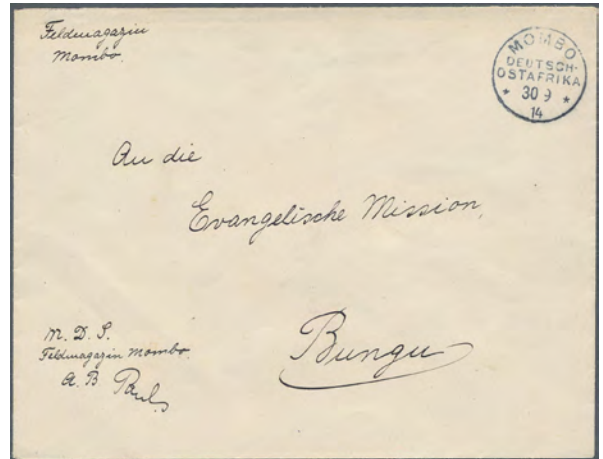 Feldmagazin
Mombo.
MOMBO
DEUTSCH-
OSTAFRIKA
* 30 9 *
14
An die
Evangelische Mission,
Bungu
M. D. S.
Feldmagazin Mombo.
A. B